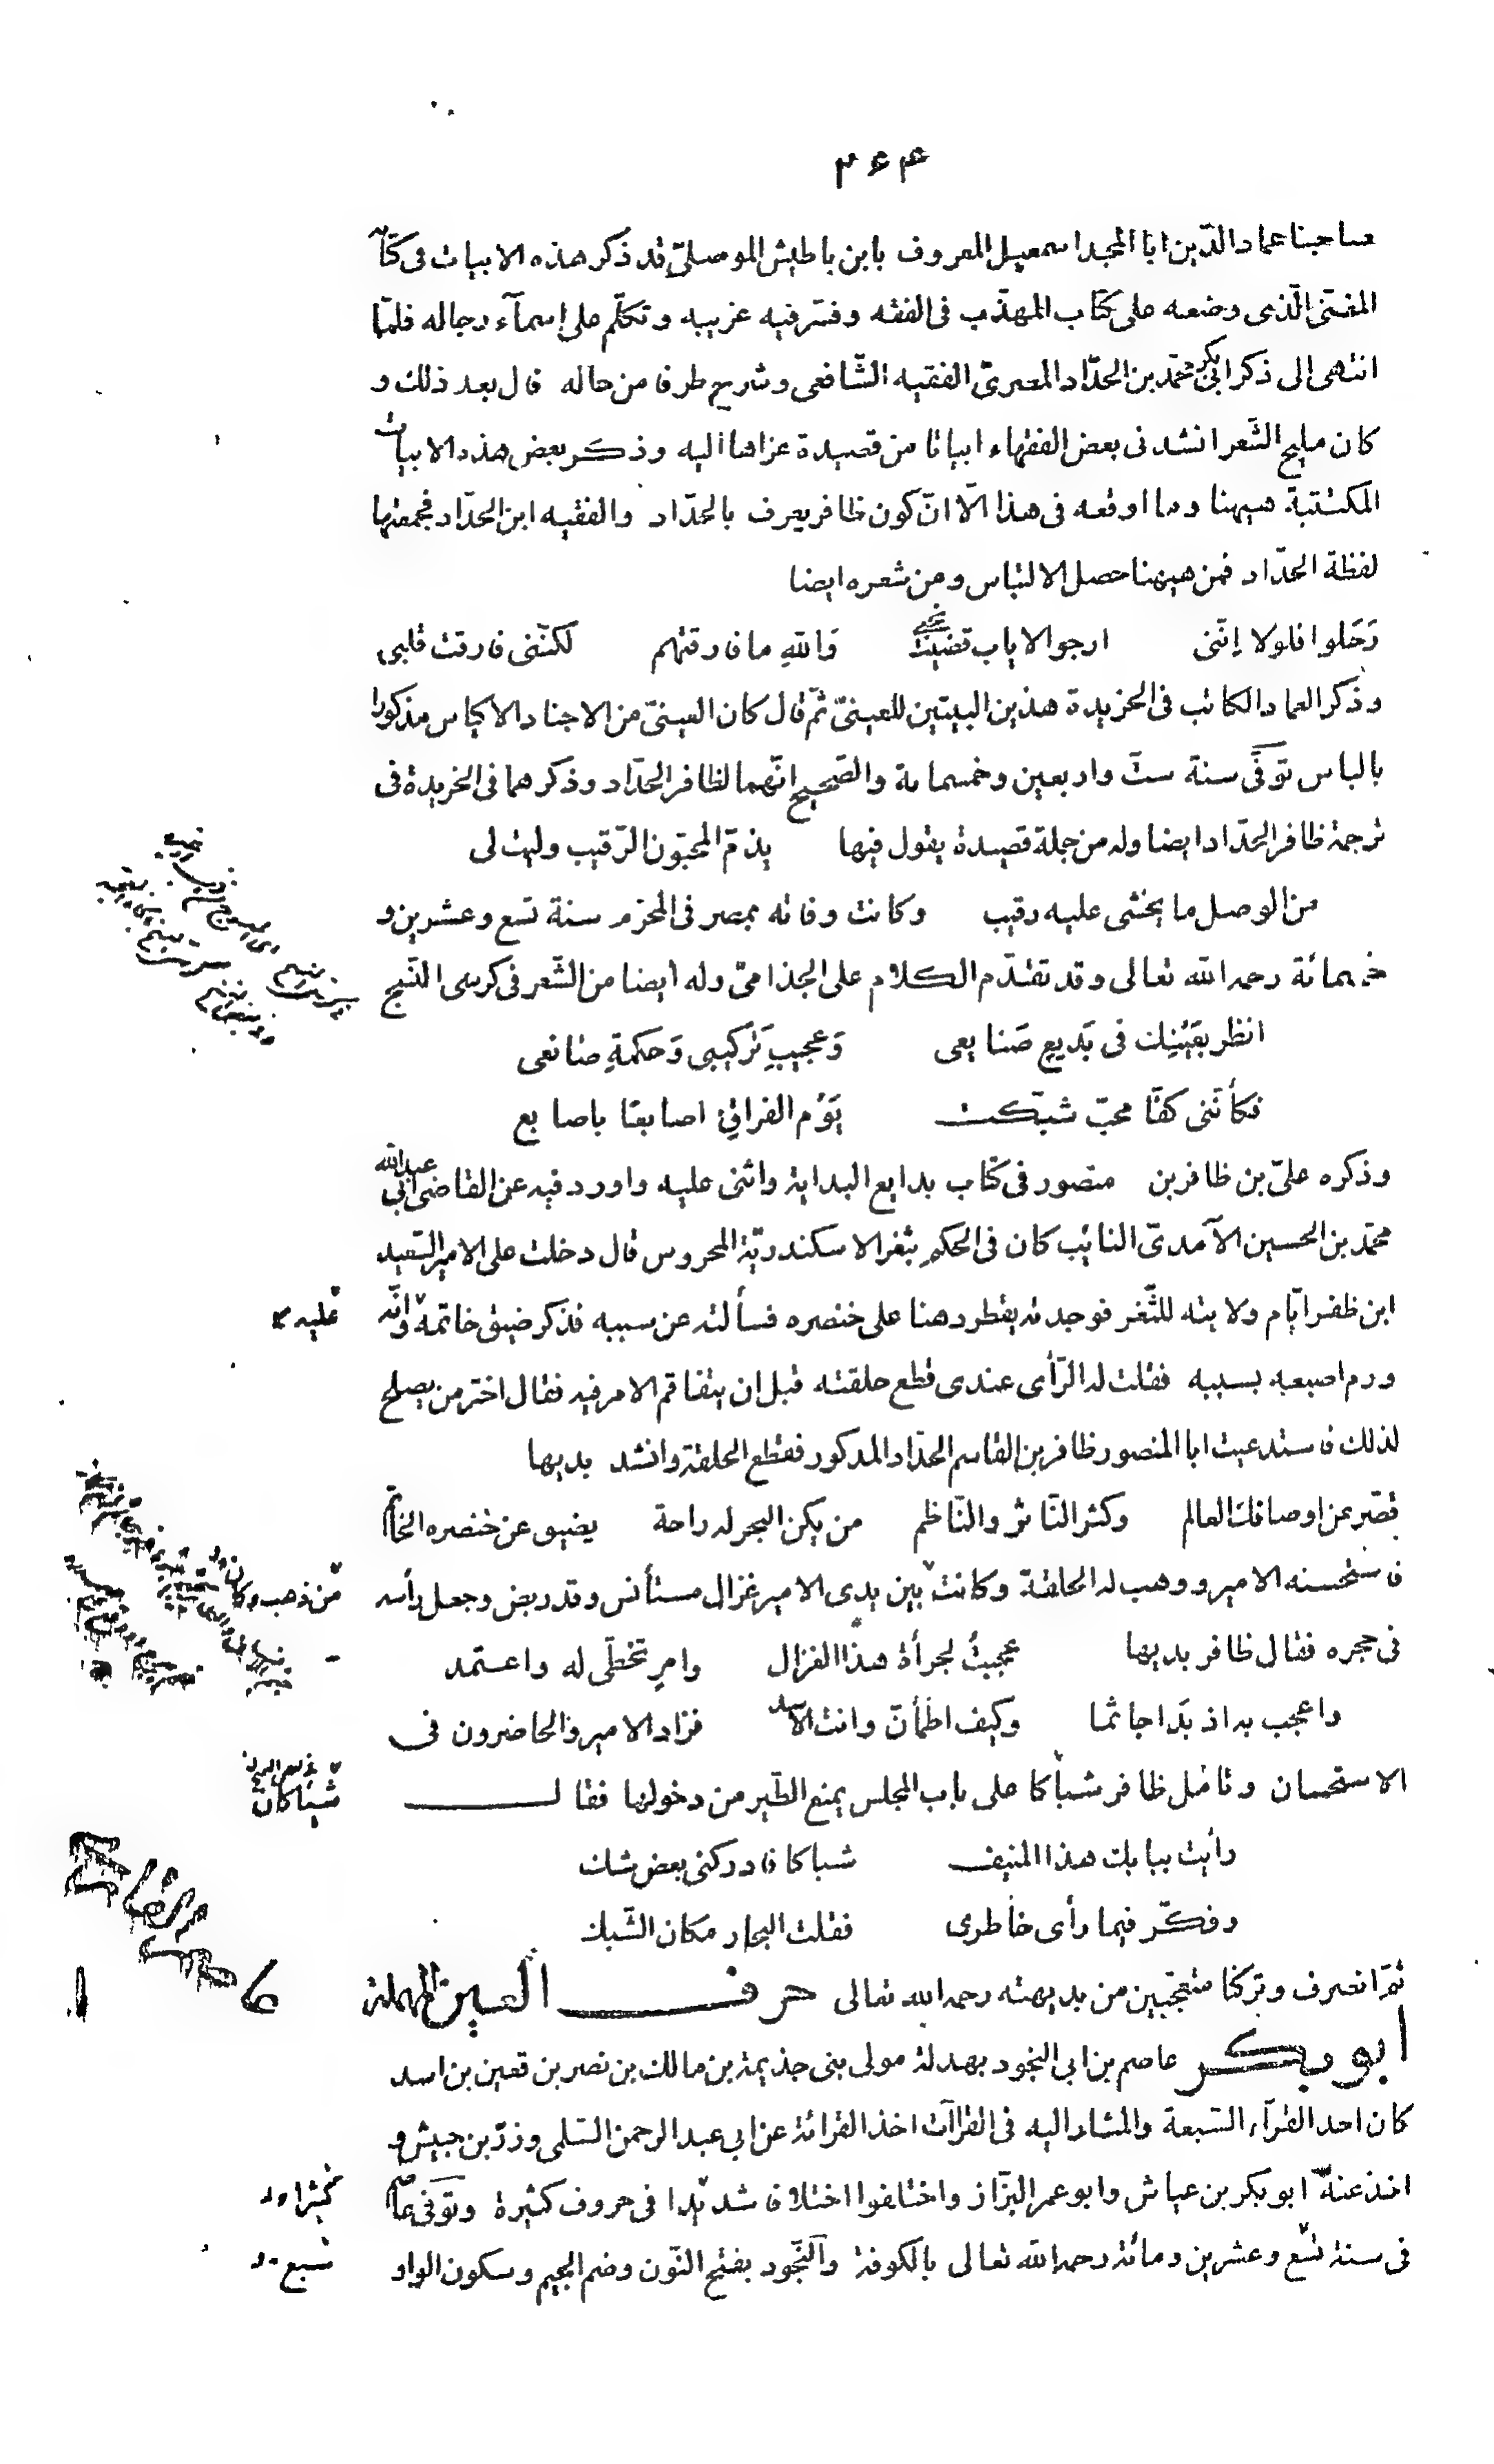 ٢٤٣
صاحبنا عماد الدّين ابا المجد اسمعيل المعروف بابن باطيش الموصلىّ قد ذكر هذه الابيات فى كتابه
المغنى الّذى وضعه على كتاب المهذّب فى الفقه وفسّر فيه غريبه وتكلّم على اسمآء رجاله فلمّا
انتهى الى ذكر ابى بكر محمّد بن الحدّاد المصرىّ الفقيه الشّافعى وشرح طرفا من حاله قال بعد ذلك و
كان مليح الشّعر انشدنى بعض الفقهاء ابياتا من قصيدة عزاها اليه وذكر بعض هذه الابيات
المكتتبة هيهنا وما اوقعه فى هذا الّا انّ كون ظافر يعرف بالحدّاد والفقيه ابن الحدّاد فجمعتهما
لفظة الحدّاد فمن هيهنا حصل الالتباس ومن شعره ايضا
رَحَلوا فلولا اِنّنى ارجو الاياب قضيت نحبى وَاللهِ ما فارقتهم لكنّنى فارقت قلبى
وذكر العماد الكاتب فى الخريدة هذين البيتين للعينىّ ثمّ قال كان العينىّ من الاجناد الاكياس مذكورا
بالباس توفّى سنة ستّ واربعين وخمسماية والصّحيح انّهما لظافر الحدّاد وذكرهما فى الخريدة فى
ترجمة ظافر الحدّاد ايضا وله من جملة قصيدة يقول فيها يذمّ المحبّون الرّقيب وليت لى
من الوصل ما يخشى عليه رقيب وكانت وفاته بمصر فى المحرّم سنة تسع وعشرين و
خمسمائة رحمه الله تعالى وقد تقدّم الكلام على الجذامىّ وله ايضا من الشّعر فى كرسى النّسج
انظر بعَيْنِك فى بَديعِ صَنايعى وَعجيبِ تَركيبى وَحكمةِ صانعى
فكأنّنى كفّا محبّ شبّكت يَوْم الفراقِ اصابعًا باصابع
وذكره علىّ بن ظافر بن منصور فى كتاب بدايع البداية واثنى عليه واورد فيه عن القاضى ابى عبد الله
محمّد بن الحسين الآمدىّ النائب كان فى الحكم بثغر الاسكندريّة المحروس قال دخلت على الامير السّعيد
ابن ظفر ايّام ولايته للثّغر فوجدته يقطر دهنا على خنصره فسألته عن سببه فذكر ضيق خاتمه وانّه
عليه
ورم اصبعه بسببه فقلت له الرّأى عندى قطع حلقته قبل ان يتفاقم الامر فيه فقال اختر من يصلح
لذلك فاستدعيت ابا المنصور ظافر بن القاسم الحدّاد المذكور فقطع الحلقة وانشد بديها
قصّر عن اوصافك العالم وكثر النّاثر والنّاظم من يكن البحر له راحة يضيق عن خنصره الخاتم
فاستحسنه الامير ووهب له الحلقة وكانت بين يدى الامير غزال مستأنس وقد ربض وجعل رأسه
من ذهب وكان
فى حجره فقال ظافر بديها عجبتُ لجرأة هذا الغزال وامرٍ تخطّى له واعتمد
واعجب به اذ بَدا جاثما وكيف اطمأنّ وانت الاسد فزاد الامير والحاضرون فى
الاستحسان وتأمّل ظافر شباكا على باب المجلس يمنع الطّير من دخولها فقال
شبّاكا كان
رأيت ببابك هذا المنيف شباكا فادركنى بعض شك
وفكّر فيما رأى خاطرى فقلت البحار مكان الشّبك
ثمّ انصرف وتركنا متعجّبين من بديهته رحمه الله تعالى حرف العين المهملة
ابو بكر عاصم بن ابى النجود بهدلة مولى بنى جذيمة بن مالك بن نصر بن قعين بن اسد
كان احد القرآء السّبعة والمشار اليه فى القرآآت اخذ القرائة عن ابى عبد الرحمن السّلمى وزرّ بن حبيش و
اخذ عنه ابو بكر بن عياش وابو عمر البزّاز واختلفوا اختلافا شديدا فى حروف كثيرة وتوفّى عاصم
كثيرا
فى سنة تسع وعشرين ومائة رحمه الله تعالى بالكوفة والنّجود بفتح النّون وضم الجيم وسكون الواو
سبع